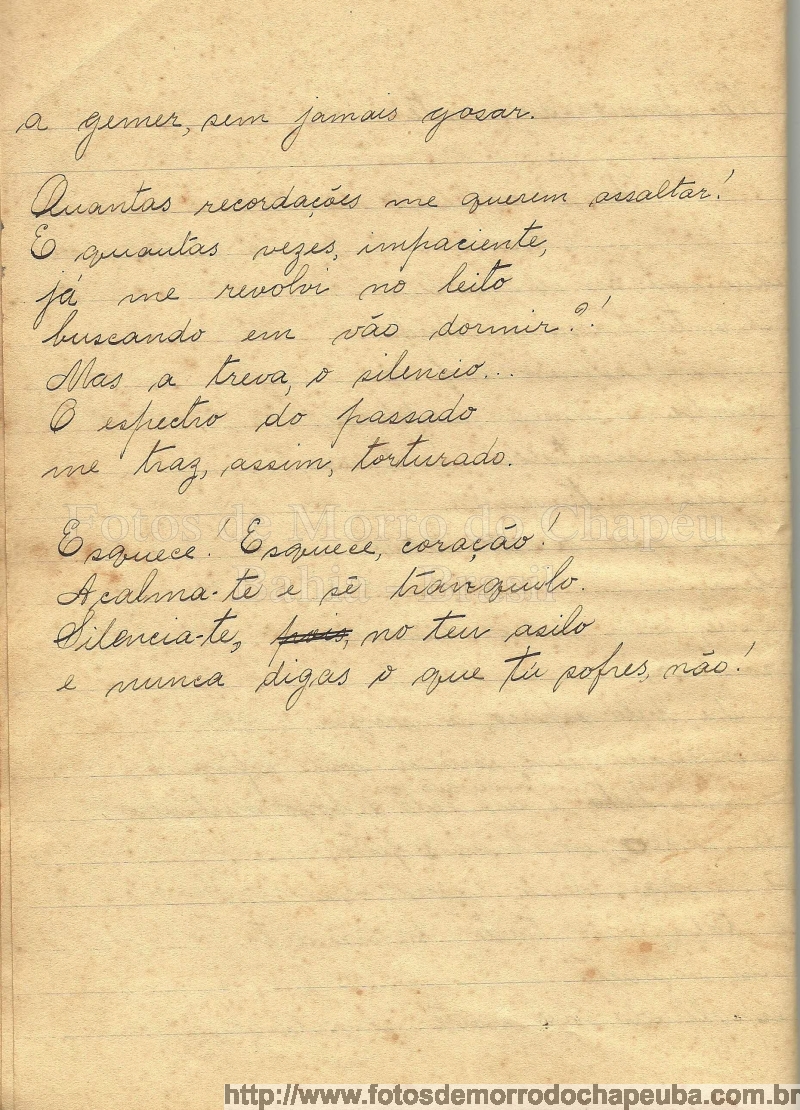 a gemer, sem jamais gosar.
Quantas recordações me querem assaltar!
E quantas vezes, impaciente,
já me revolvi no leito
buscando em vão dormir?!
Mas a treva, o silencio...
O espectro do passado
me traz, assim, torturado.
Fotos de Morro do Chapéu
Esquece! Esquece, coração!
Acalma-te e sê tranquilo.
Bahia - Brasil
Silencia-te, pois, no teu asilo
e nunca digas o que tú sofres, não!
http://www.fotosdemorrodochapeuba.com.br